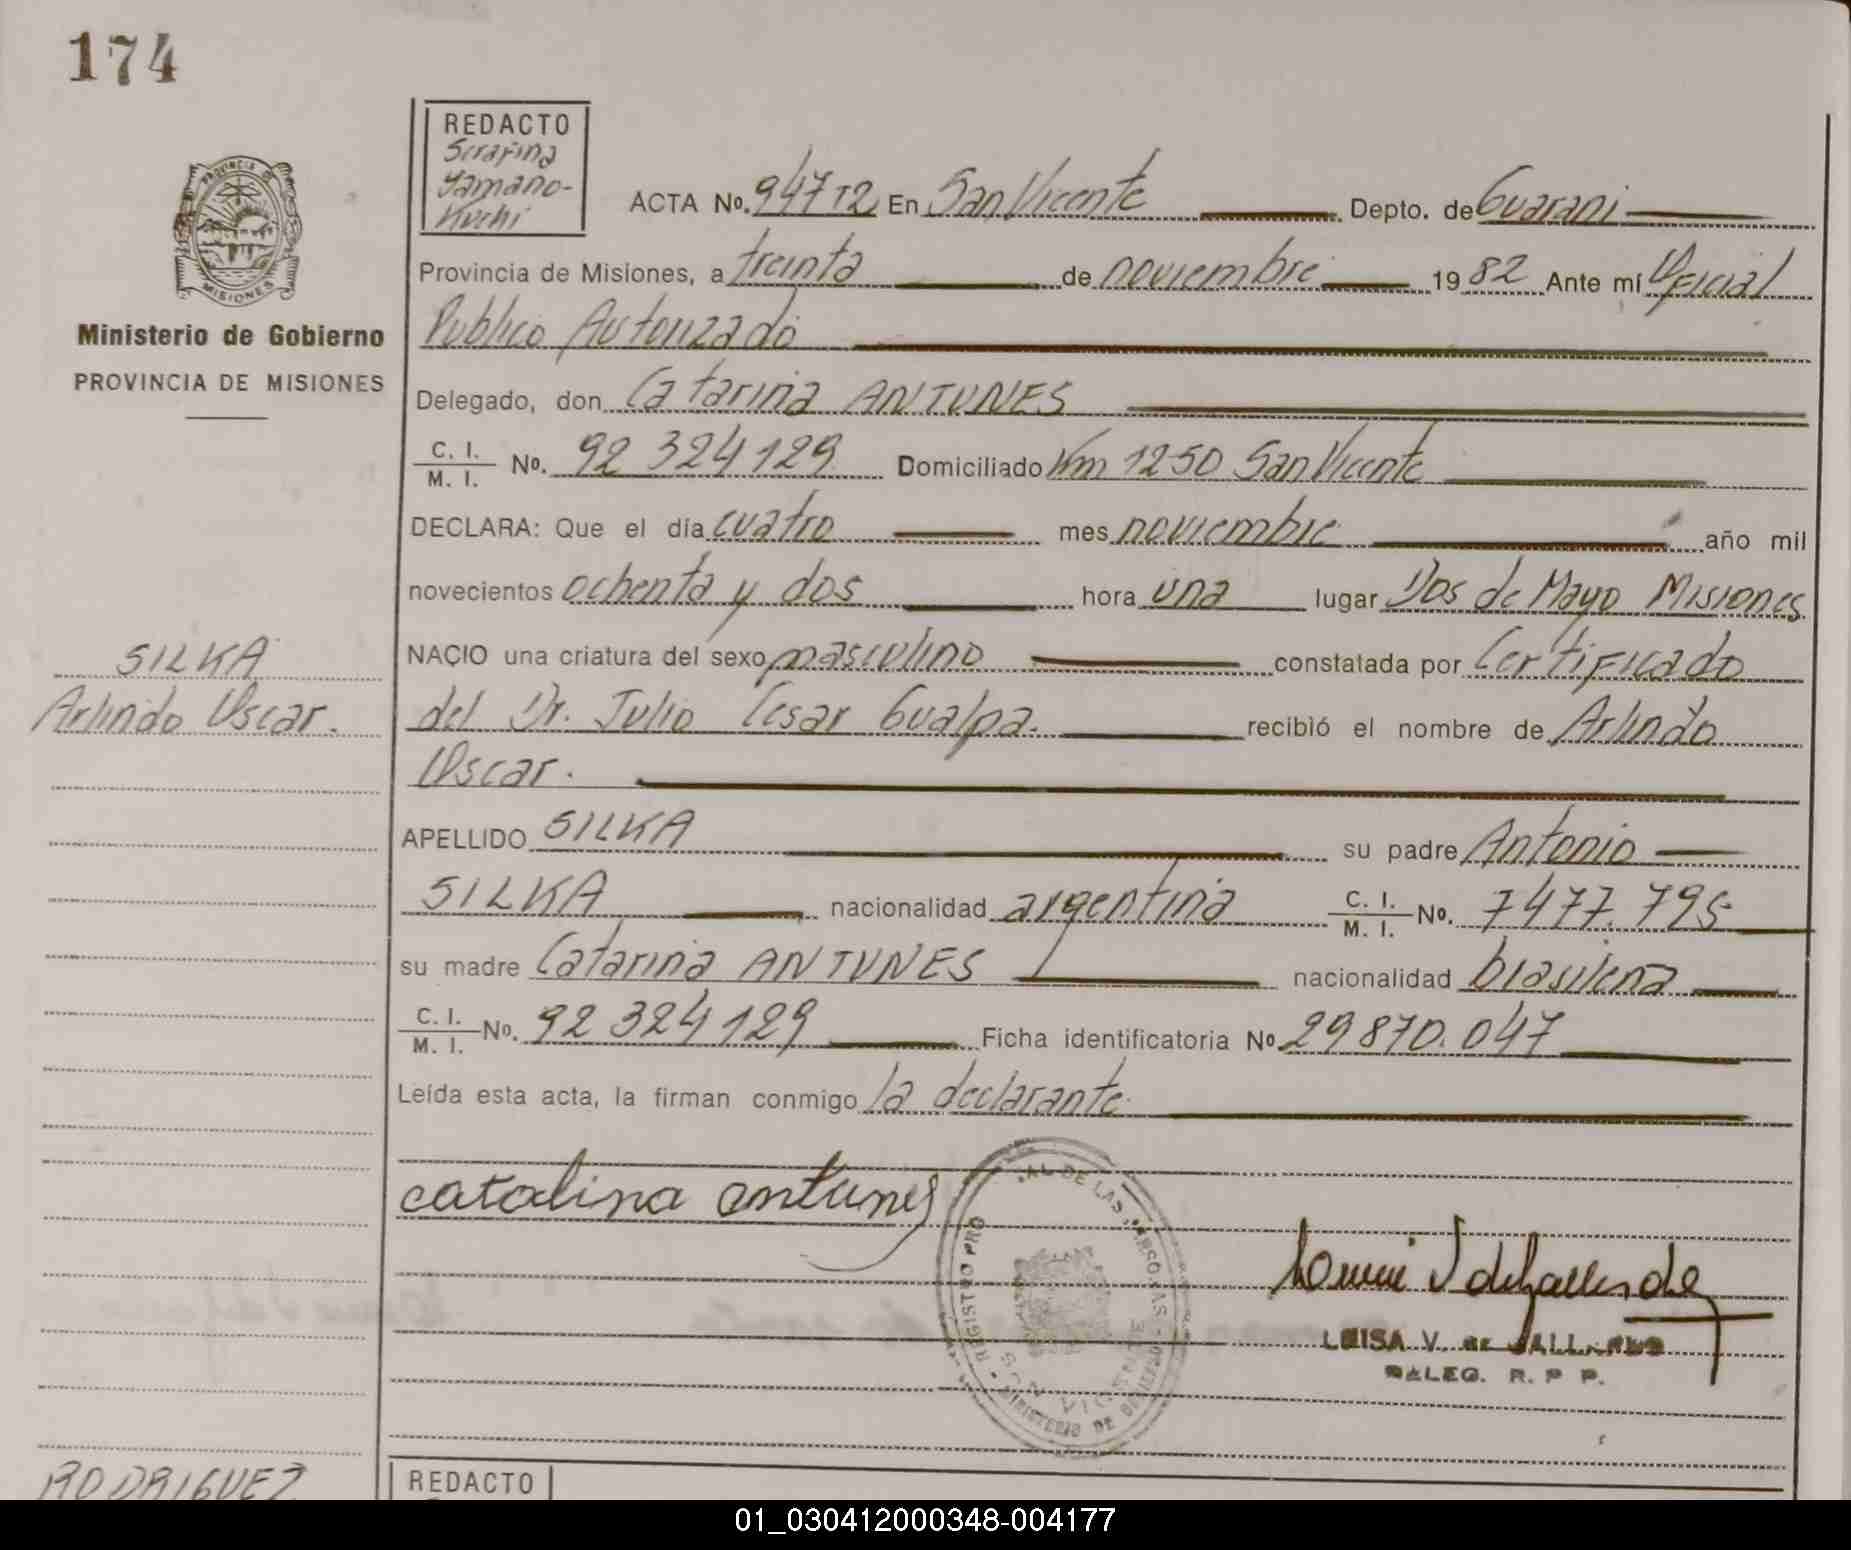 174
REDACTO
Serafina
Yamano-
Kuchi
ACTA No. 947 T2 En San Vicente Depto. de Guarani
PROVINCIA DE
MISIONES
Provincia de Misiones, a treinta de noviembre 1982 Ante mí Oficial
Ministerio de Gobierno
Publico Autorizado
PROVINCIA DE MISIONES
Delegado, don Catarina ANTUNES
C. I.
M. I. No. 92 324129 Domiciliado Km 1250 San Vicente
DECLARA: Que el día cuatro mes noviembre año mil
novecientos ochenta y dos hora una lugar Dos de Mayo Misiones
SILKA
NACIO una criatura del sexo masculino constatada por Certificado
Arlindo Oscar.
del Dr. Julio Cesar Gualpa. recibió el nombre de Arlindo
Oscar.
APELLIDO SILKA su padre Antonio
SILKA nacionalidad argentina C. I.
M. I. No. 7477.795
su madre Catarina ANTUNES nacionalidad brasilena
C. I.
M. I. No. 92 324129 Ficha identificatoria No 29870.047
Leída esta acta, la firman conmigo la declarante
catalina antunes
REGISTRO PRO AL DE LAS
SAN VICENTE
MINISTERIO DE GOBIERNO
LUISA V. DE GALLARDO
DALEG. R. P P.
RODRIGUEZ
REDACTO
01_030412000348-004177